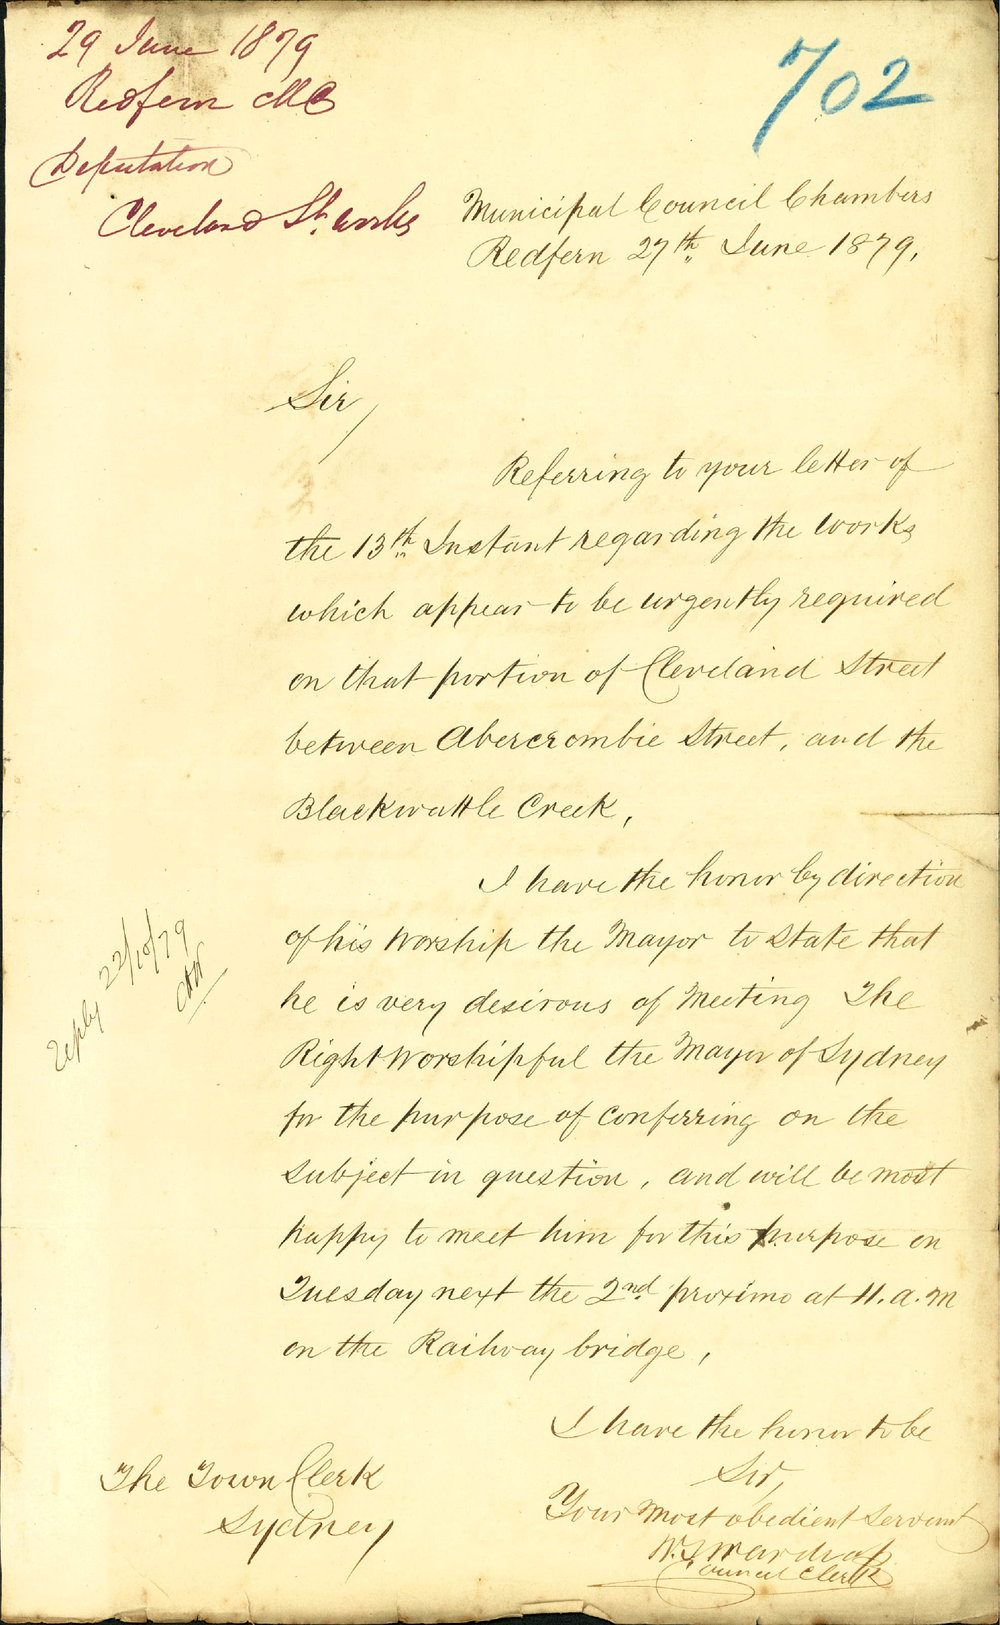 29 June 1879
Redfern MC
Deputation
Cleveland St. Works
702
Municipal Council Chambers
Redfern 27th June 1879.
Sir,
Referring to your letter of
the 13th Instant regarding the works
which appear to be urgently required
on that portion of Cleveland Street
between Abercrombie Street, and the
Blackwattle Creek,
I have the honor by direction
of his Worship the Mayor to state that
he is very desirous of Meeting The
Right Worshipful the Mayor of Sydney
for the purpose of conferring on the
subject in question, and will be most
happy to meet him for this purpose on
Tuesday next the 2nd proximo at 11. a.m
on the Railway bridge,
I have the honor to be
Sir,
Your most obedient servant
Wardrop
Council Clerk
The Town Clerk
Sydney
reply 22/10/79